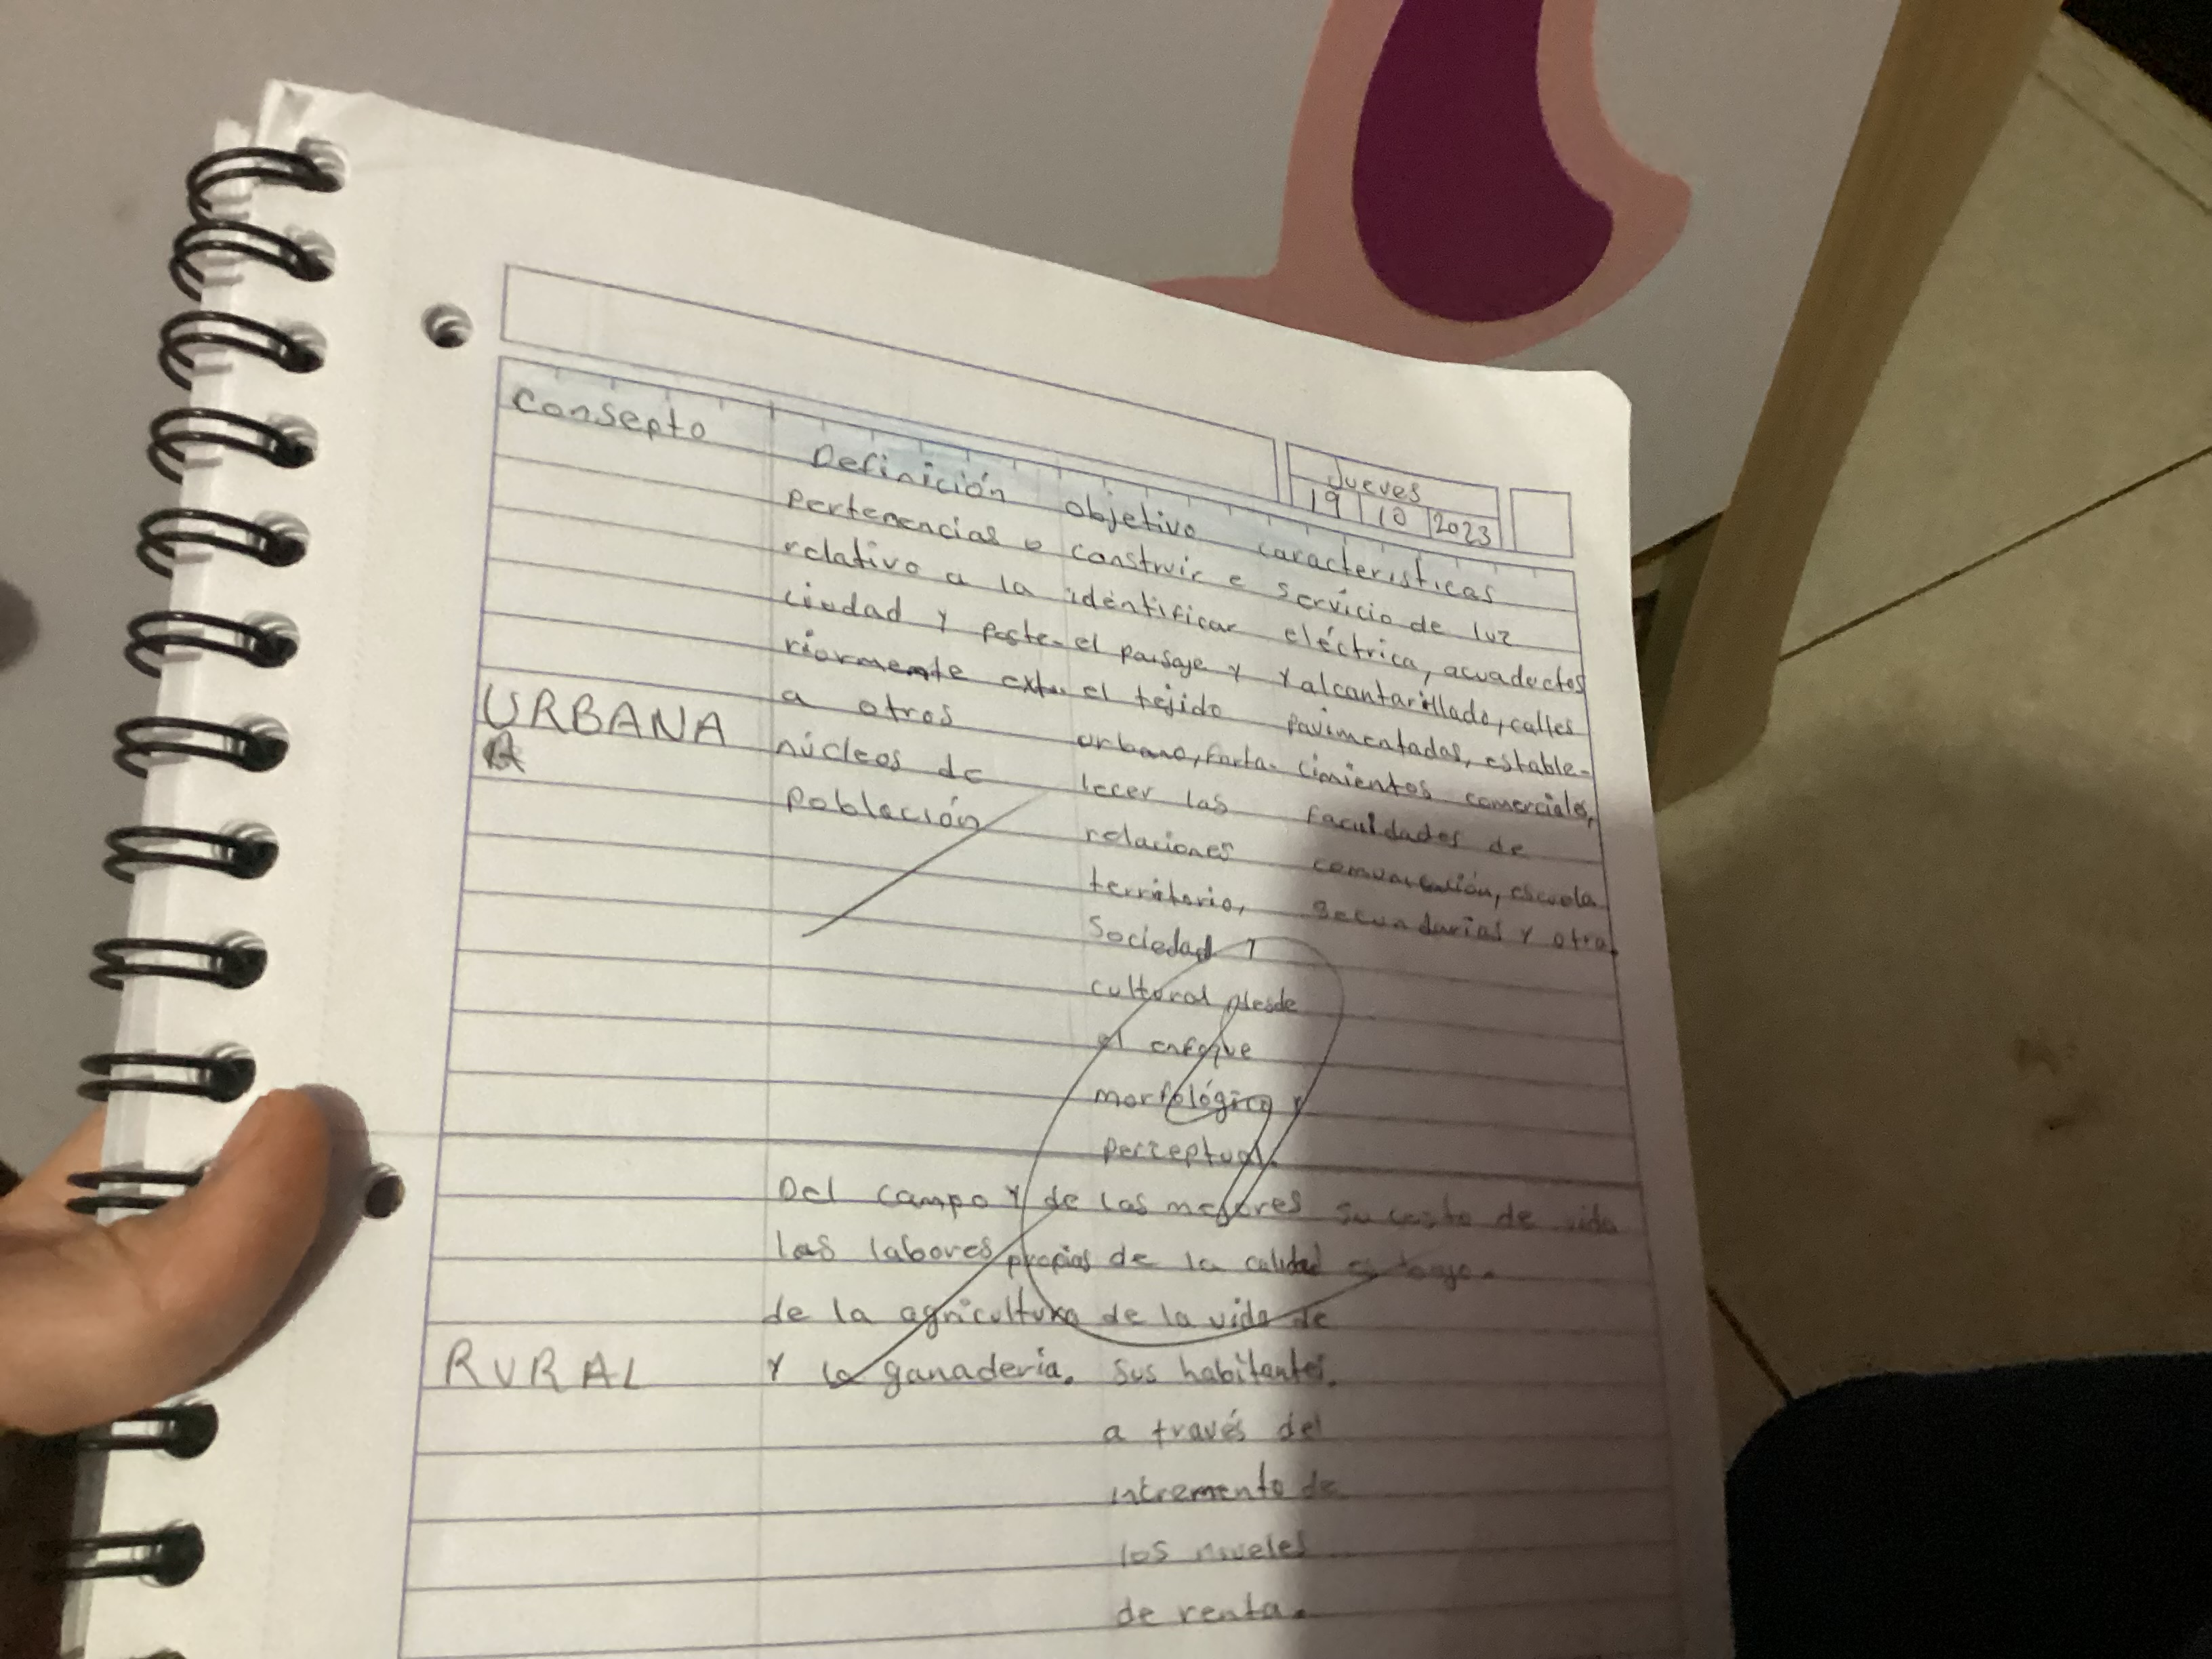 Jueves
19 10 2023
Consepto Definición objetivo caracteristicas
pertenencias o construir e servicio de luz
relativo a la identificar eléctrica, acuaductos
ciudad y poste- el paisaje y y alcantarillado, calles
riormente el tejido pavimentadas, estable-
URBANA a otros urbano, forta- cimientos comerciales,
núcleos de lecer las faculdades de
población relaciones comunicación, escuela
territorio, secundarias y otra.
Sociedad y
cultural desde
el enfoque
morfológico y
perceptual.
Del campo y de las mejores su costo de vida
las labores propias de la calidad es
de la agricultura de la vida de
RURAL y la ganaderia. sus habitantes.
a través del
incremento de
los niveles
de renta.